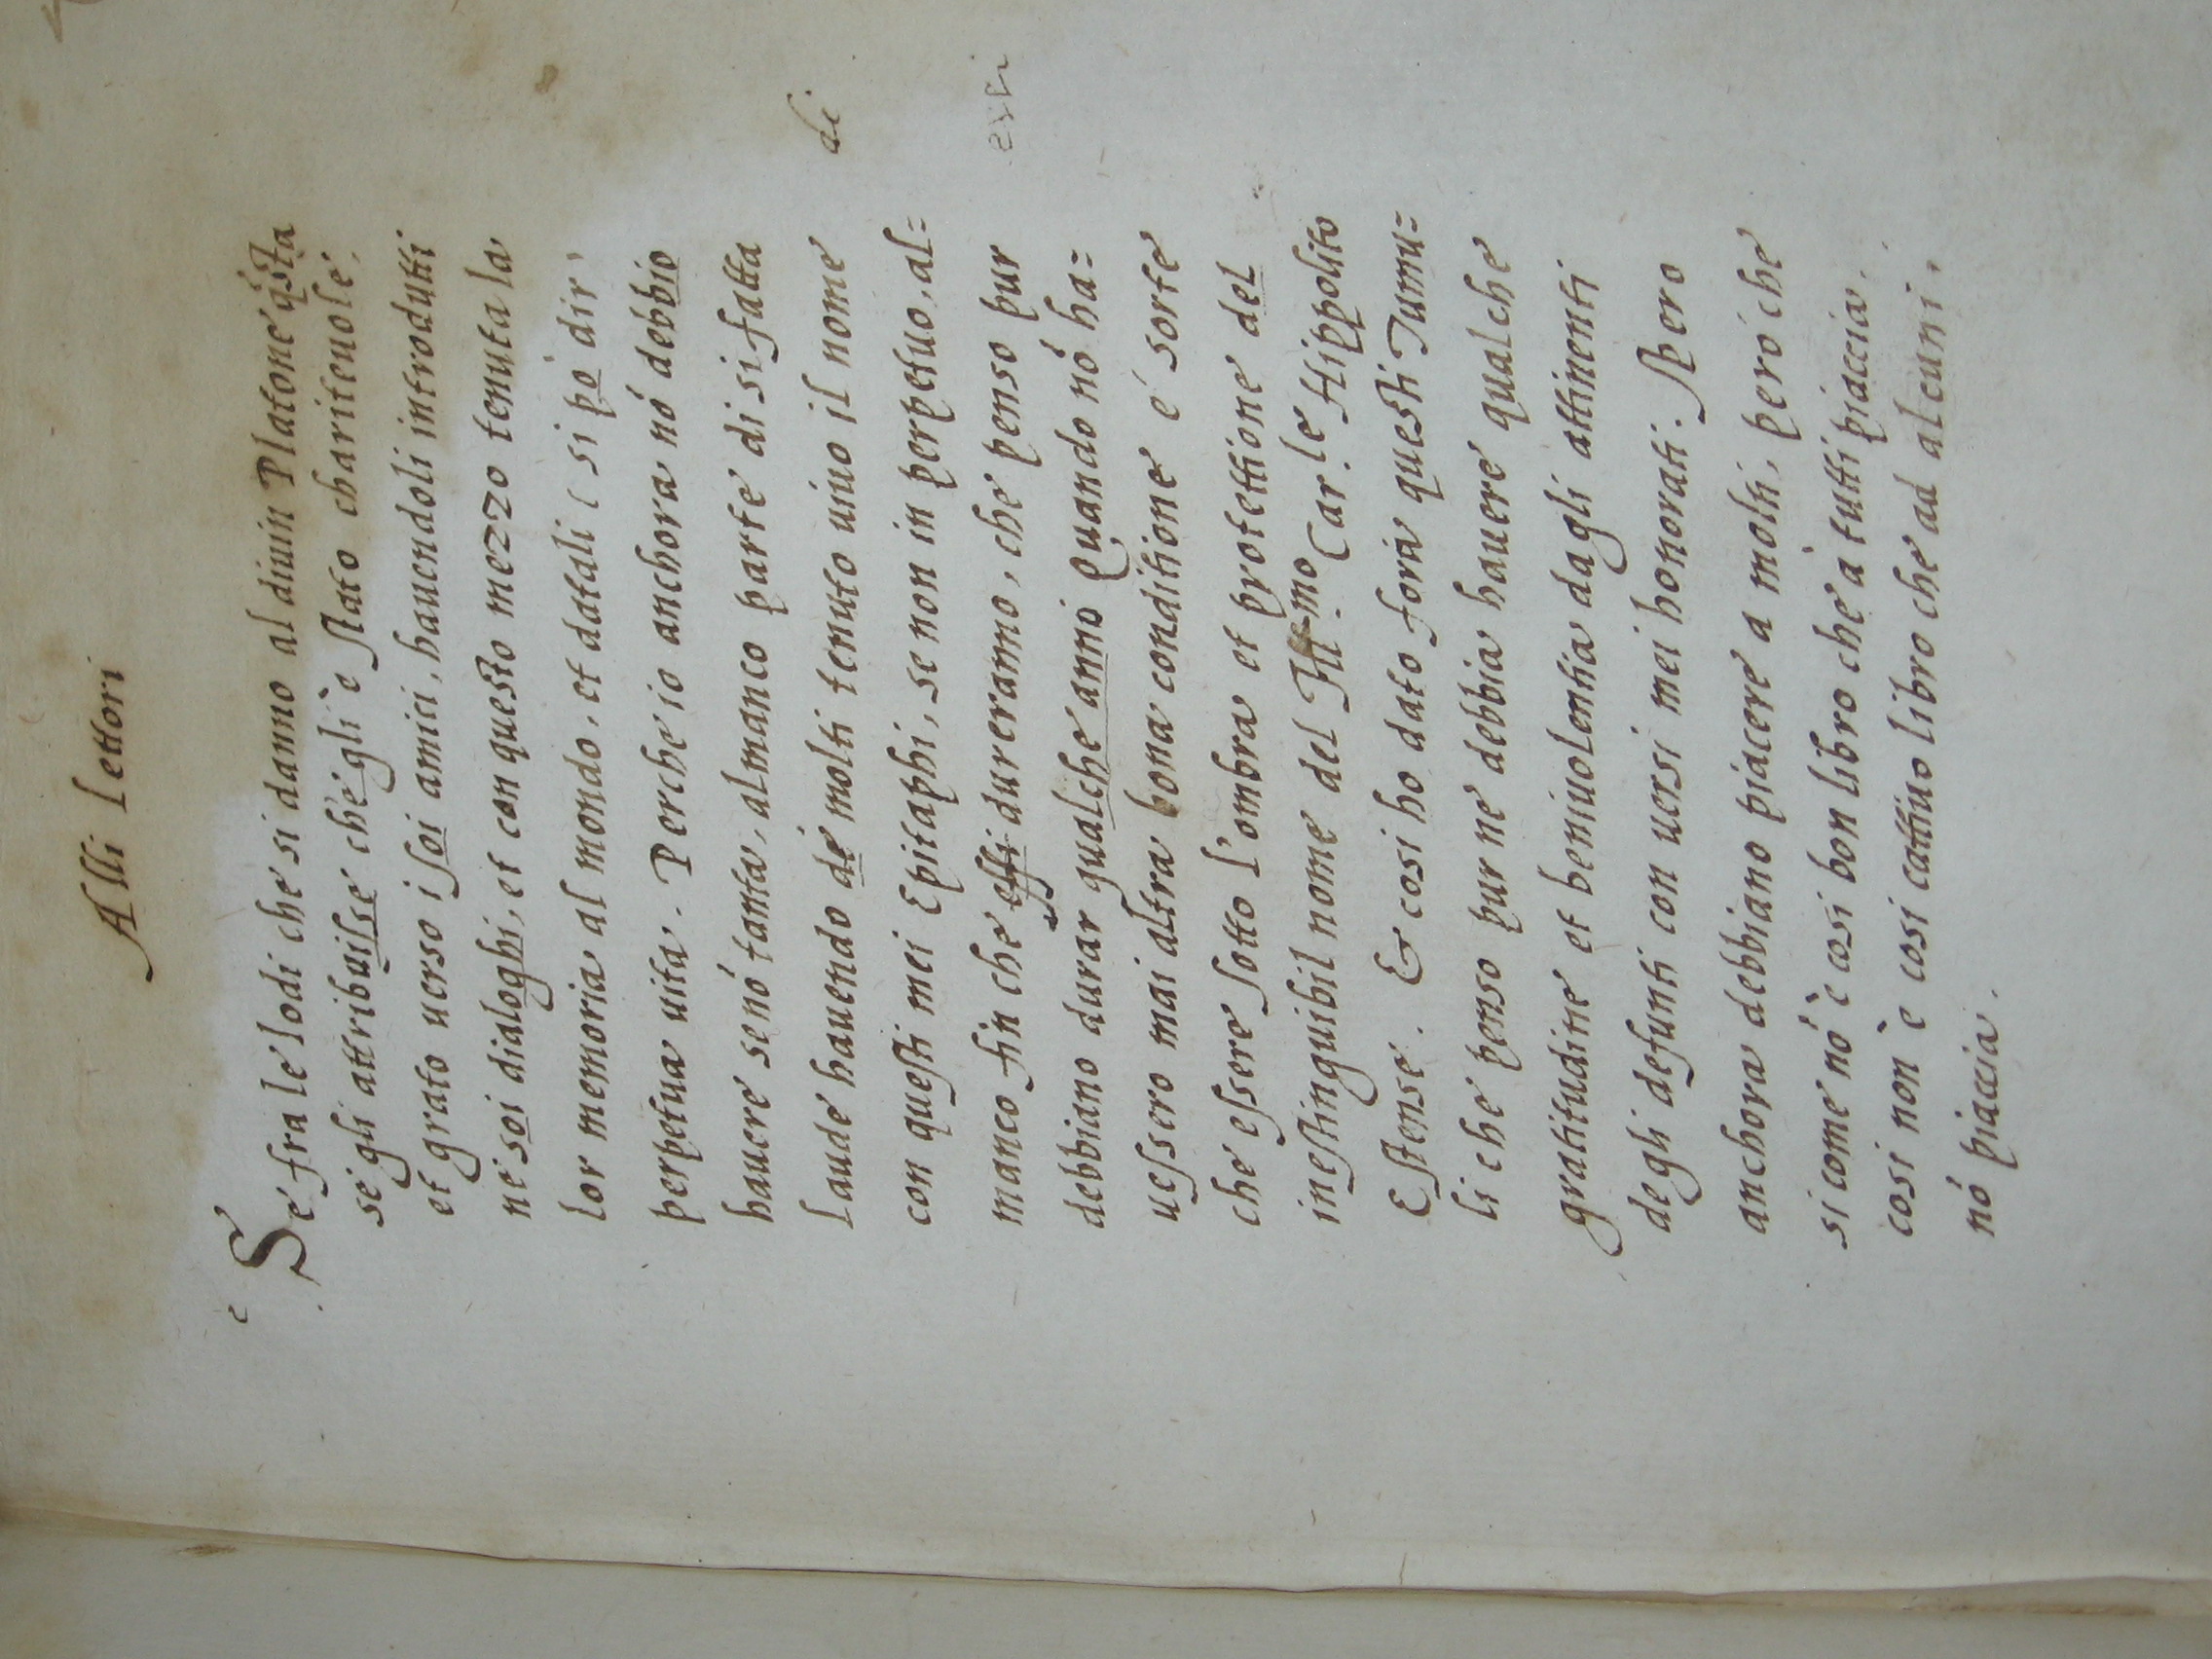 Alli Lettori
Se fra le lodi che si danno al diuin Platone q̃sta
se gli attribuisse ch'egli è stato chariteuole,
et grato uerso i soi amici, hauendoli introdutti
ne soi dialoghi, et con questo mezzo tenuta la
lor memoria al mondo, et datali (si pò dir)
perpetua uita. Perche io anchora nõ debbio
hauere se nõ tanta, almanco parte di si fatta
laude hauendo de molti tenuto uiuo il nome di
con questi mei Epitaphi, se non in perpetuo, al=
manco fin che essi dureranno, che penso pur essi
debbiano durar qualche anno Quando nõ ha=
uessero mai altra bona conditione e sorte
che essere sotto l'ombra et protettione del
inestinguibil nome del Ill.mo Car.le Hippolito
Estense. & cosi ho dato fora questi Tumu=
li che penso pur ne debbia hauere qualche
gratitudine et beniuolentia dagli attinenti
degli defunti con uersi mei honorati. Spero
anchora debbiano piacere a molti, però che
si come nõ è cosi bon libro che à tutti piaccia,
cosi non è cosi cattiuo libro che ad alcuni
nõ piaccia.